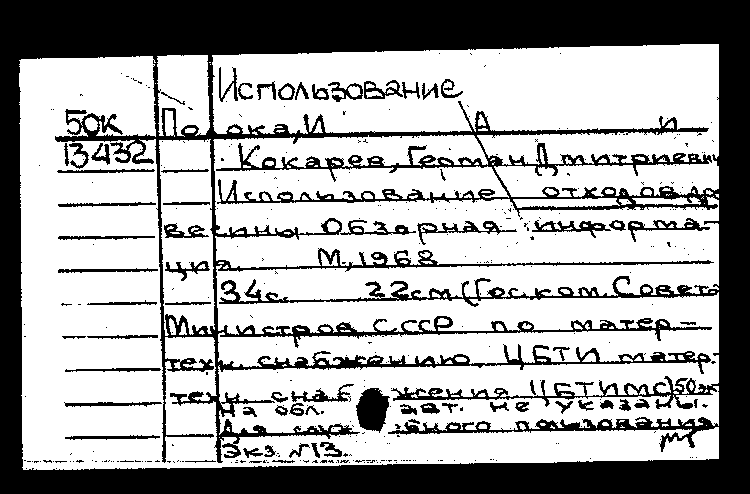 Использование
50К Полока, И А И
13432 Кокарев, Герман Дмитриевич
Использование отходов дре
весины Обзорная информа-
ция. М., 1968
34с. 22см (Гос. ком. Совета
Министров СССР по матер-
техн. снабжению. ЦБТИ матер.
техн. снабжения ЦБТИМС) 50 эк
На обл. авт. не указаны.
Для служебного пользования
Экз. №13.